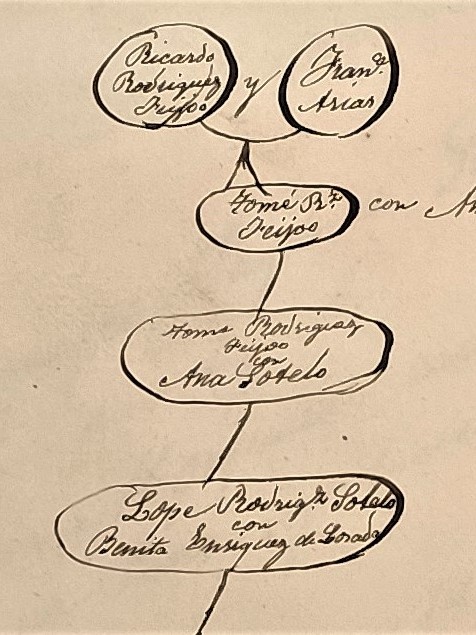 Ricardo
Rodriguez
Feijóo
y
Fran.ca
Arias
Tomé R.z
Feijoo
con
Tome Rodriguez
Feijoo
con
Ana Sotelo
Lope Rodrig.z Sotelo
con
Benita Enriquez de Losada